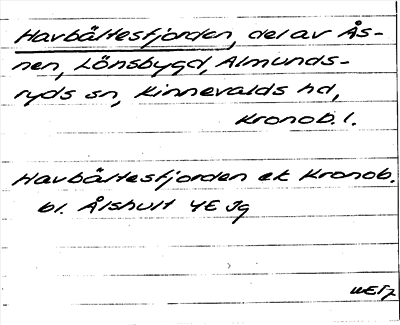 Havbältesfjorden, del av Ås-
nen, Lönsbygd, Almunds-
ryds sn, Kinnevalds hd,
Kronob. l.
Havbältesfjorden ek Kronob.
bl. Älshult 4E Jg